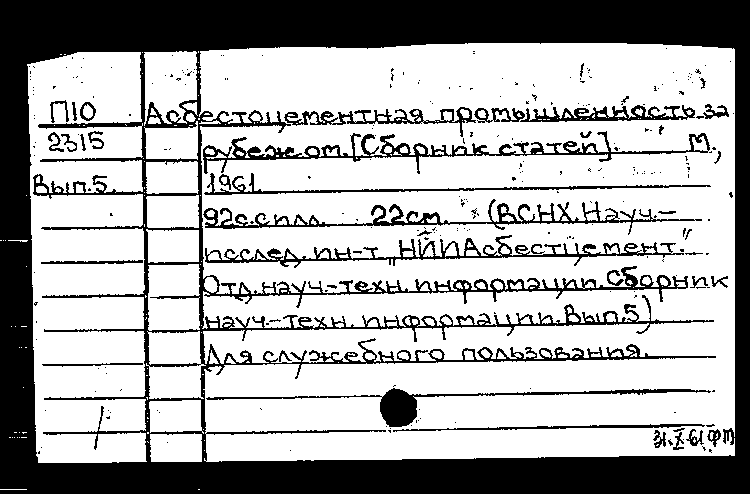 П10 Асбестоцементная промышленность за
2315 рубежом. [Сборник статей]. М.,
Вып.5. 1961.
92с.с илл. 22см. (ВСНХ. Науч.-
исслед. ин-т „НИИАсбестцемент."
Отд. науч-техн. информации. Сборник
науч-техн. информации. Вып.5).
Для служебного пользования.
31.X.61